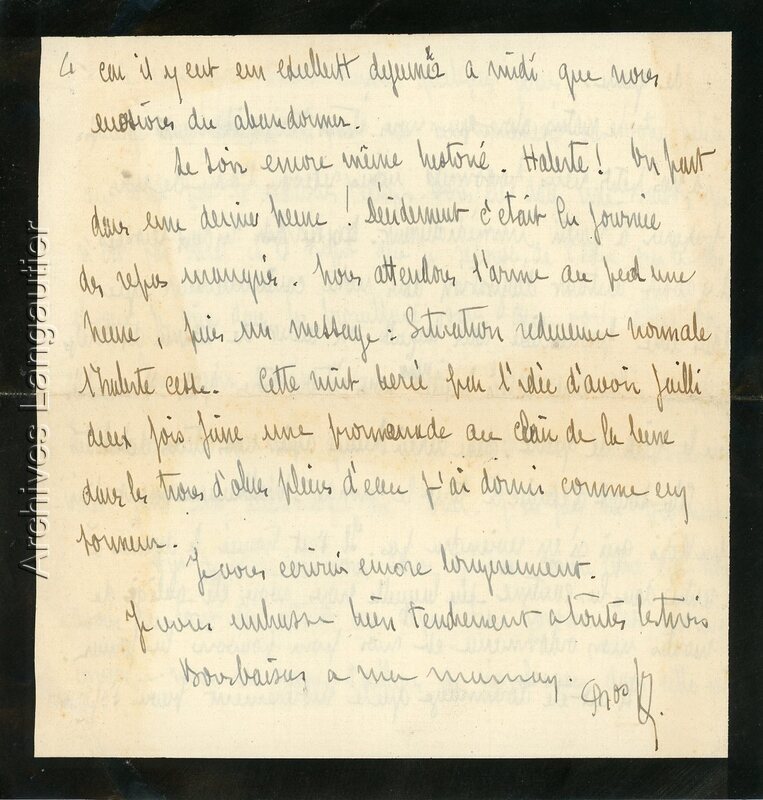 4 car il y eut un excellent dejeuné a midi que nous
eussions du abandonner.
Le soir encore même histoire. Halerte! On part
dans une demie heure! Décidement c'était la journée
des repas manqués. Nous attendons l'arme au pied une
heure, puis un message: Situation redevenue normale
l'halerte cesse. Cette nuit bercé par l'idée d'avoir failli
deux fois faire une promenade au clair de la lune
dans les trous d'obus pleins d'eau j'ai dormi comme un
sonneur.
Je vous écrirai encore longuement.
Je vous embrasse bien tendrement a toutes les trois
Bons baisers a ma
Archives Langautier